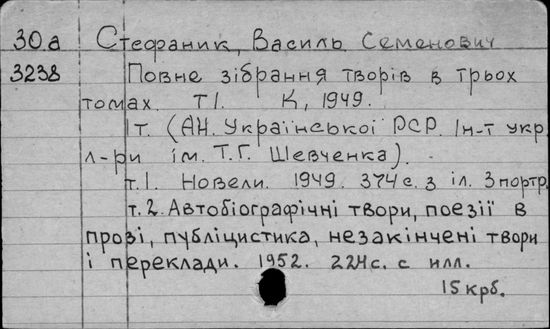 30а Стефраник, Василь Семенович
3238 Повне зібрання творів в трьох
томах. Т I. К, 1949.
т. (АН. Української РСР. Ін-т укр
л-ри ім. Т.Г. Шевченка).
т.1. Новели. 1949. 374 с. з іл. З портр.
т.2. Автобіографічні твори, поезії в
прозі, публіцистика, незакінчені твори
і переклади. 1952. 224 с. с илл.
15 крб.